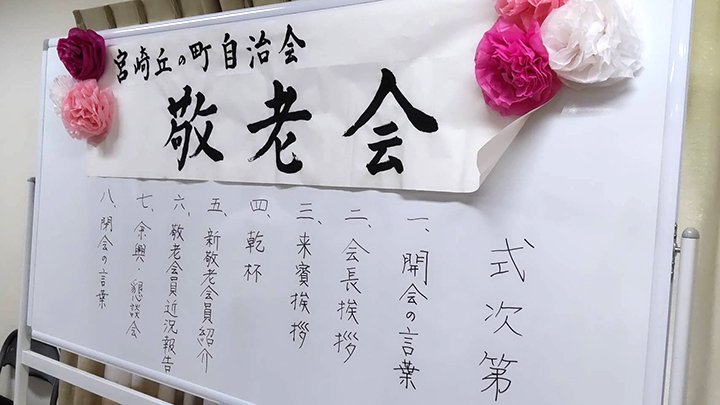 宮崎丘の町自治会
敬老会
式次第
一、開会の言葉
二、会長挨拶
三、来賓挨拶
四、乾杯
五、新敬老会員紹介
六、敬老会員近況報告
七、余興・懇談会
八、閉会の言葉